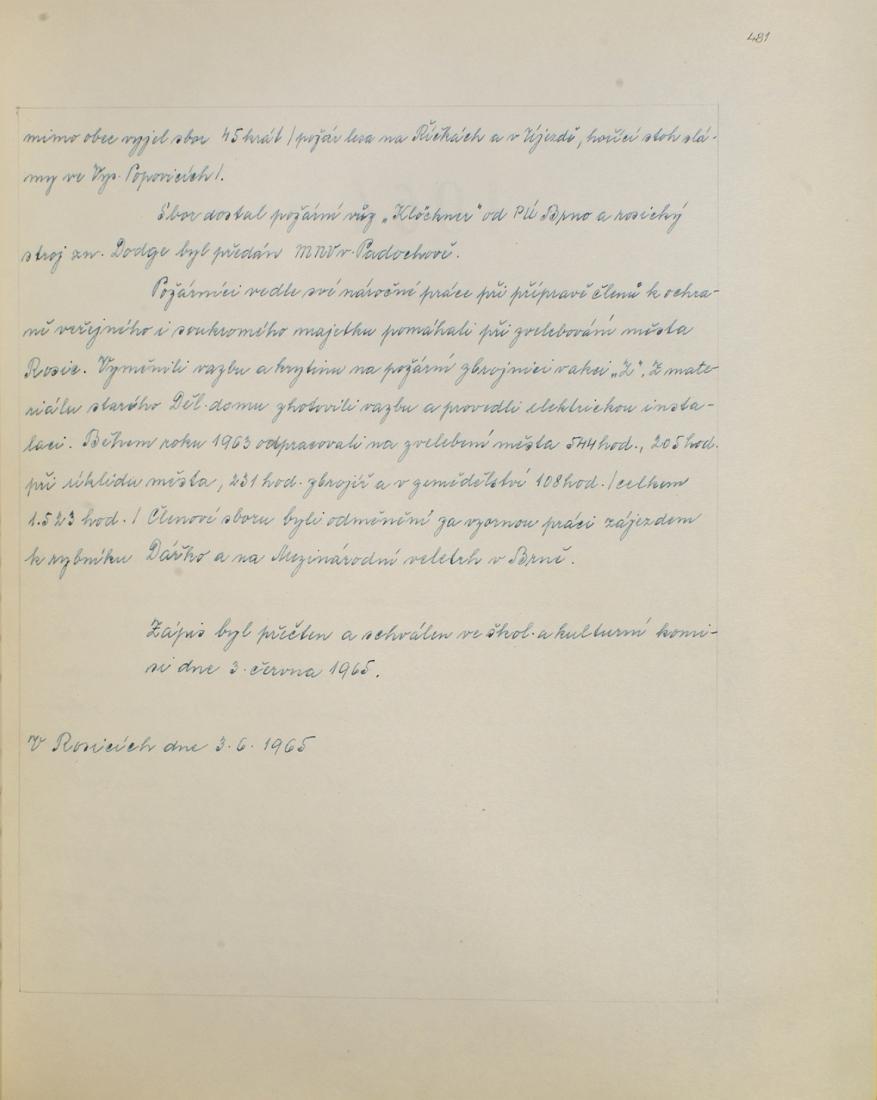 481
mimo obec vyjel sbor 45krát /požár lesa na Říčkách a v Újezdě, hořící stoh slá-
my ve Vys. Popovicích/.
Sbor dostal požární vůz „Klöckner" od PÚ Brno a rosický
stroj zn. Dodge byl předán MNV v Padochově.
Požárníci vedle své náročné práce při přípravě členů k ochra-
ně veřejného i soukromého majetku pomáhali při zvelebování města
Rosic. Vyměnili vazbu a krytinu na požární zbrojnici v akci „Z". Z mate-
riálu starého Děl. domu zhotovili vazbu a provedli elektrickou insta-
laci. Během roku 1963 odpracovali na zvelebení města 544 hod., 205 hod.
při úklidu města, 231 hod. zbrojíř a v zemědělství 108 hod. /celkem
1.523 hod./ Členové sboru byli odměněni za vzornou práci zájezdem
k rybníku Dářko a na Mezinárodní veletrh v Brně.
Zápis byl přečten a schválen ve škol. a kulturní komi-
si dne 3. června 1965.
V Rosicích dne 3. 6. 1965